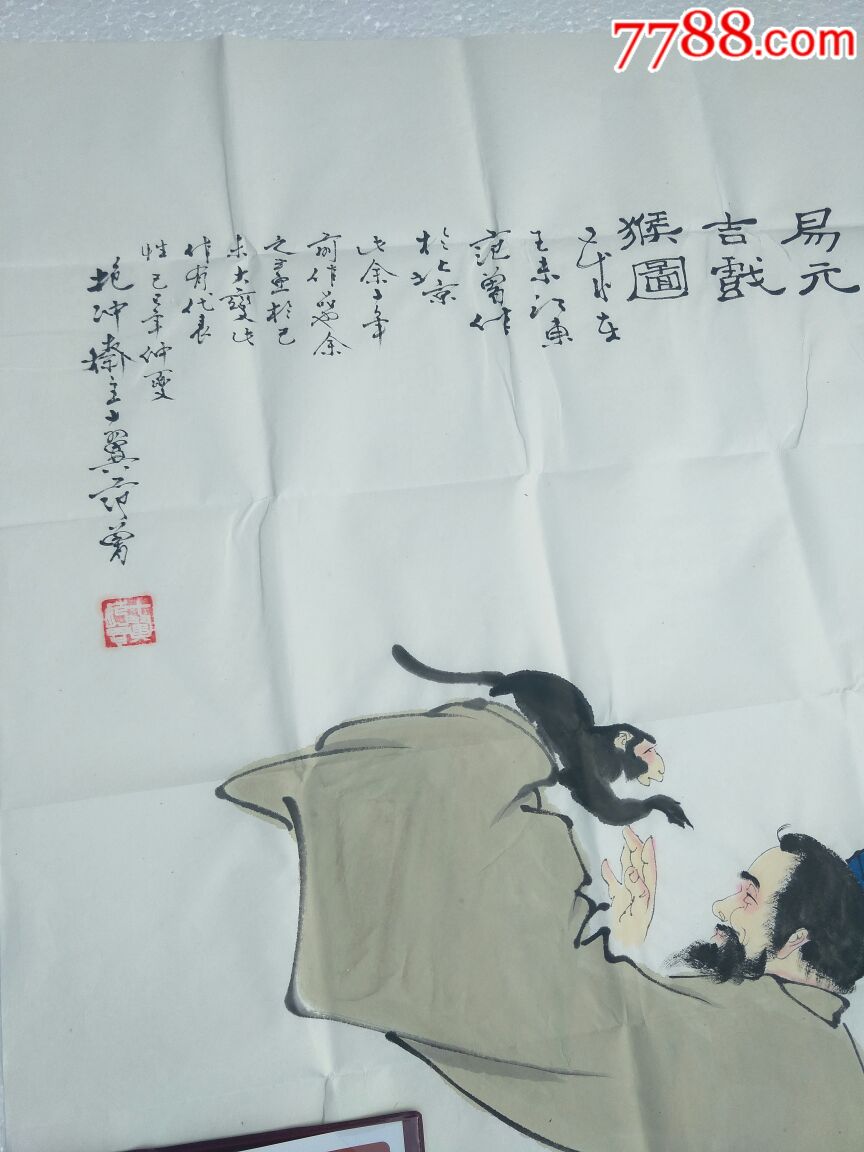 7788.com
易元
吉戲
猴圖
王來江東
范曾作
於北京
此余十年
前作品也余
之畫於己
未大變此
作有代表
性己巳年仲夏
抱冲齋主十翼范曾